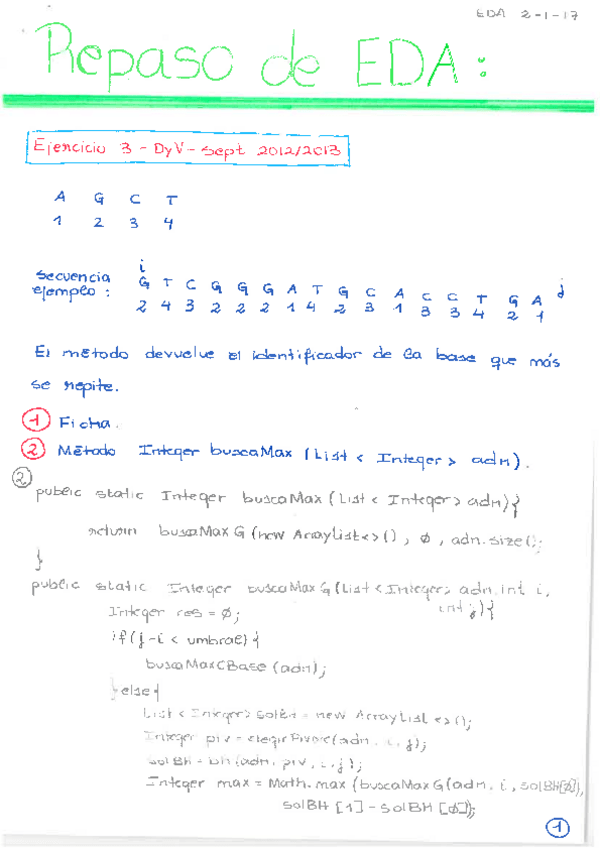 EDA 2-1-17
Repaso de EDA:
Ejercicio 3 - DyV - Sept 2012/2013
A G C T
1 2 3 4
i
Secuencia G T C G G G A T G C A C C T G A j
ejemplo: 2 4 3 2 2 2 1 4 2 3 1 3 3 4 2 1
El método devuelve el identificador de la base que más
se repite.
① Ficha.
② Método Integer buscaMax (List < Integer > adn).
②
public static Integer buscaMax (List < Integer> adn){
return buscaMaxG (new ArrayList<>(), ø, adn.size();
}
public static Integer buscaMaxG (List <Integer> adn, int i,
int j){
Integer res = ø;
if(j-i < umbral){
buscaMaxCBase (adn);
}else{
List < Integer> solBH = new ArrayList <>();
Integer piv = elegirPivote(adn, i, j);
solBH = bh(adn, piv, i, j);
Integer max = Math.max (buscaMaxG(adn, i, solBH[ø]),
solBH [1] - solBH [ø]);
①